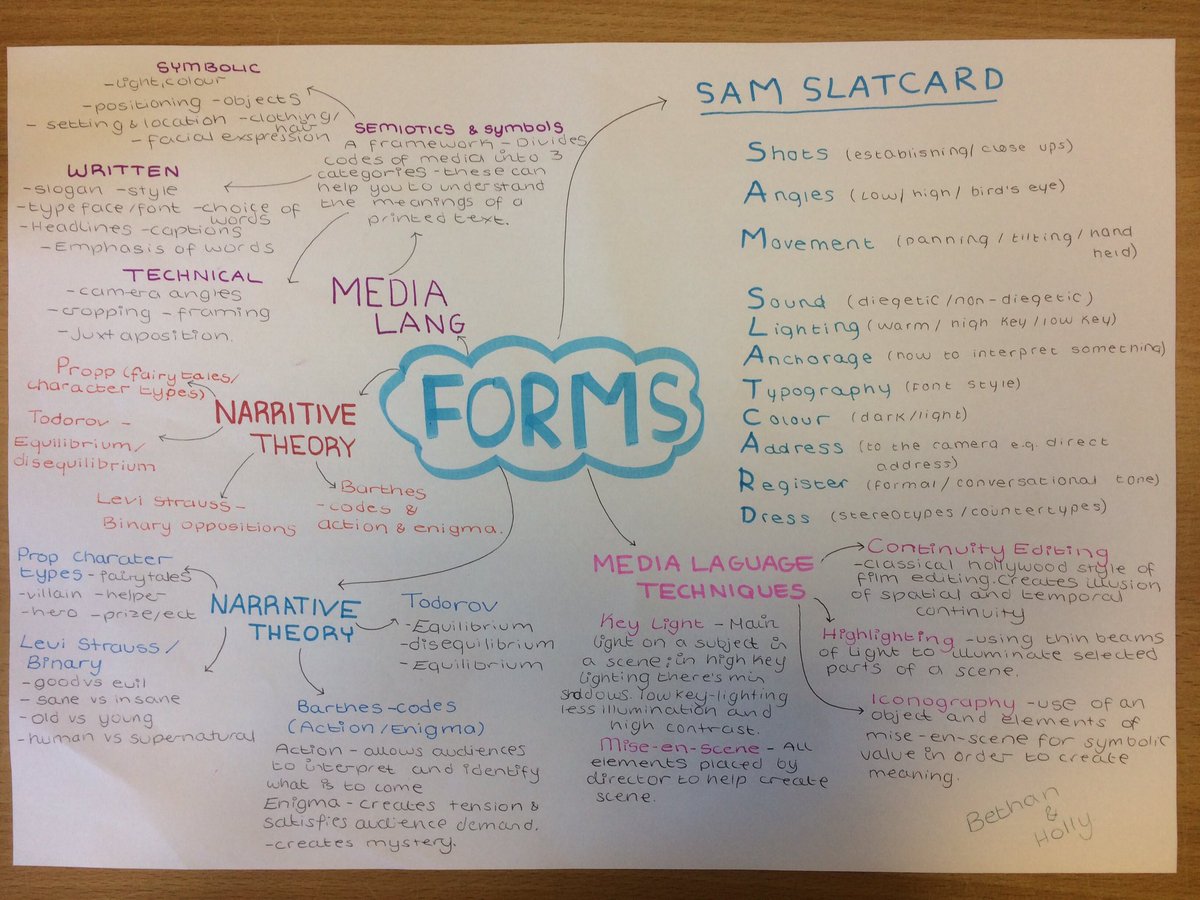 SYMBOLIC
-light, colour
-positioning -objects
- setting & location -clothing/
hair
-facial exspression
SEMIOTICS & symbols
A framework - Divides
codes of media into 3
categories - these can
help you to understand
the meanings of a
printed text.
WRITTEN
-slogan -style
-typeface/font -choice of
words
-Headlines -captions
-Emphasis of words
TECHNICAL
-camera angles
-cropping -framing
-Juxtaposition.
MEDIA
LANG
FORMS
Propp (fairytales/
character types)
NARRITIVE
THEORY
Todorov -
Equilibrium/
disequilibrium
Levi Strauss-
Binary oppositions
Barthes
-codes &
action & enigma.
SAM SLATCARD
Shots (establishing/close ups)
Angles (low/high/bird's eye)
Movement (panning/tilting/hand
held)
Sound (diegetic/non-diegetic)
Lighting (warm/high key/low key)
Anchorage (how to interpret something)
Typography (font style)
Colour (dark/light)
Address (to the camera e.g. direct
address)
Register (formal/conversational tone)
Dress (stereotypes/countertypes)
NARRATIVE
THEORY
Prop charater
types - fairytales
-villain -helper
-hero -prize/ect
Levi Strauss/
Binary
-good vs evil
-sane vs insane
-old vs young
-human vs supernatural
Todorov
-Equilibrium
-disequilibrium
-Equilibrium
Barthes-codes
(Action/Enigma)
Action - allows audiences
to interpret and identify
what is to come
Enigma - creates tension &
satisfies audience demand.
-creates mystery.
MEDIA LAGUAGE
TECHNIQUES
Key Light - Main
light on a subject in
a scene; in high key
lighting there's min
shadows. low key-lighting
less illumination and
high contrast.
Mise-en-scene - All
elements placed by
director to help create
scene.
Continuity Editing
-classical hollywood style of
film editing. creates illusion
of spatial and temporal
continuity
Highlighting - using thin beams
of light to illuminate selected
parts of a scene.
Iconography - use of an
object and elements of
mise-en-scene for symbolic
value in order to create
meaning.
Bethan
&
Holly